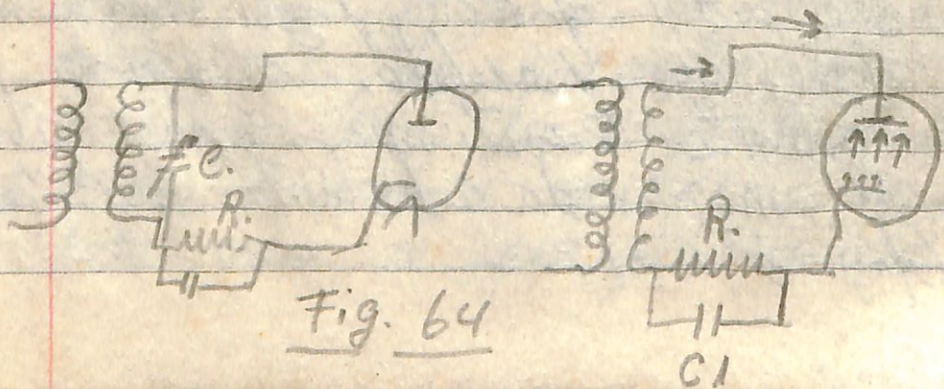 C.
R.
R.
Fig. 64
C1